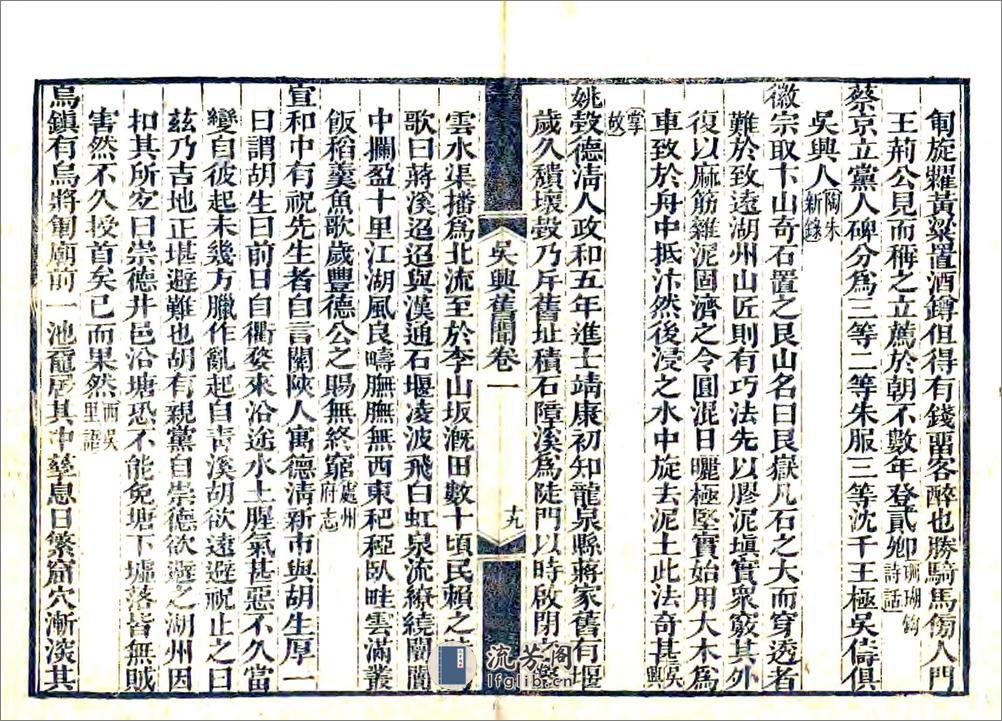 軍旋糶黃粱置酒罇但得有錢畱客醉也勝騎馬傍人門
王荆公見而稱之立薦於朝不數年登貳卿珊瑚鈎詩話
蔡京立黨人碑分爲三等二等朱服三等沈千王極吳儔俱
吳興人陶朱新錄
徽宗取卞山奇石置之艮山名曰艮嶽凡石之大而穿透者
難於致遠湖州山匠則有巧法先以膠泥塡實衆竅其外
復以麻筋雜泥固濟之令圓混日曬極堅實始用大木爲
車致於舟中抵汴然後浸之水中旋去泥土此法奇甚吳興
掌故
姚瑴德淸人政和五年進士靖康初知龍泉縣蔣家舊有堰
歲久穨壞瑴乃斥舊址積石障溪爲陡門以時啟閉
吳興舊聞卷一
十九
雲水渠播爲北流至於李山坂漑田數十頃民賴之
歌曰蔣溪迢迢與漢通石堰凌波飛白虹泉流繚繞闤闠
中攔盈十里江湖風良疇膴膴無西東䄻稏臥畦雲滿叢
飯稻羹魚歌歲豐德公之賜無終窮處州府志
宣和中有祝先生者自言關陝人寓德淸新市與胡生厚一
日謂胡生曰前日自衢婺來沿途水土腥氣甚惡不久當
變自彼起未幾方臘作亂起自靑溪胡欲遠避祝止之曰
玆乃吉地正堪避難也胡有親黨自崇德欲避之湖州因
扣其所安曰崇德井邑沿塘恐不能免塘下墟落皆無賊
害然不久授首矣已而果然西吳里語
烏鎮有烏將軍廟前一池黿居其中孳息日繁窟穴漸深其
流芳阁
lfglib.cn